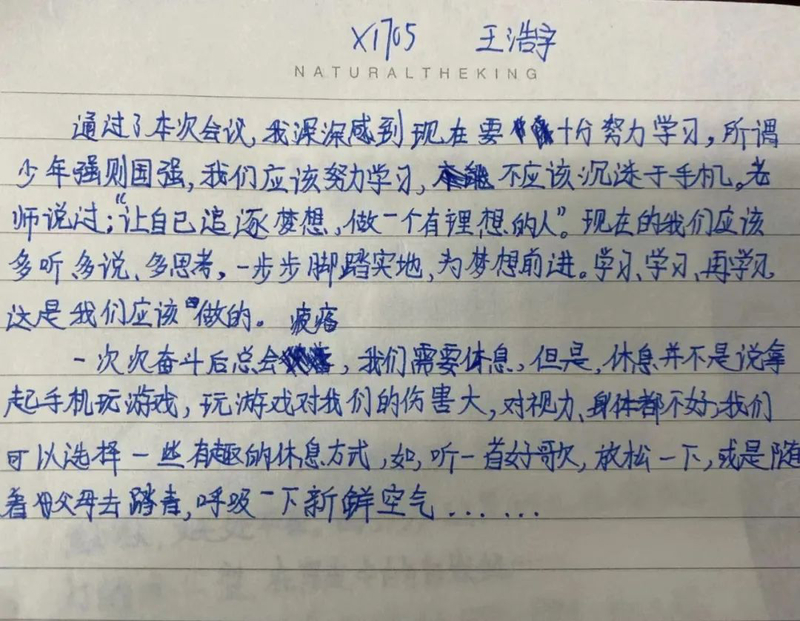 X1705 王浩宇
NATURALTHEKING
通过了本次会议,我深深感到现在要十分努力学习,所谓
少年强则国强,我们应该努力学习,不应该沉迷于手机。老
师说过:“让自己追逐梦想,做一个有理想的人”。现在的我们应该
多听、多说、多思考,一步步脚踏实地,为梦想前进。学习、学习、再学习
这是我们应该做的。
疲惫
一次次奋斗后总会,我们需要休息,但是,休息并不是说拿
起手机玩游戏,玩游戏对我们的伤害大,对视力、身体都不好,我们
可以选择一些有趣的休息方式,如,听一首好歌,放松一下,或是随
着父母去踏青,呼吸一下新鲜空气......